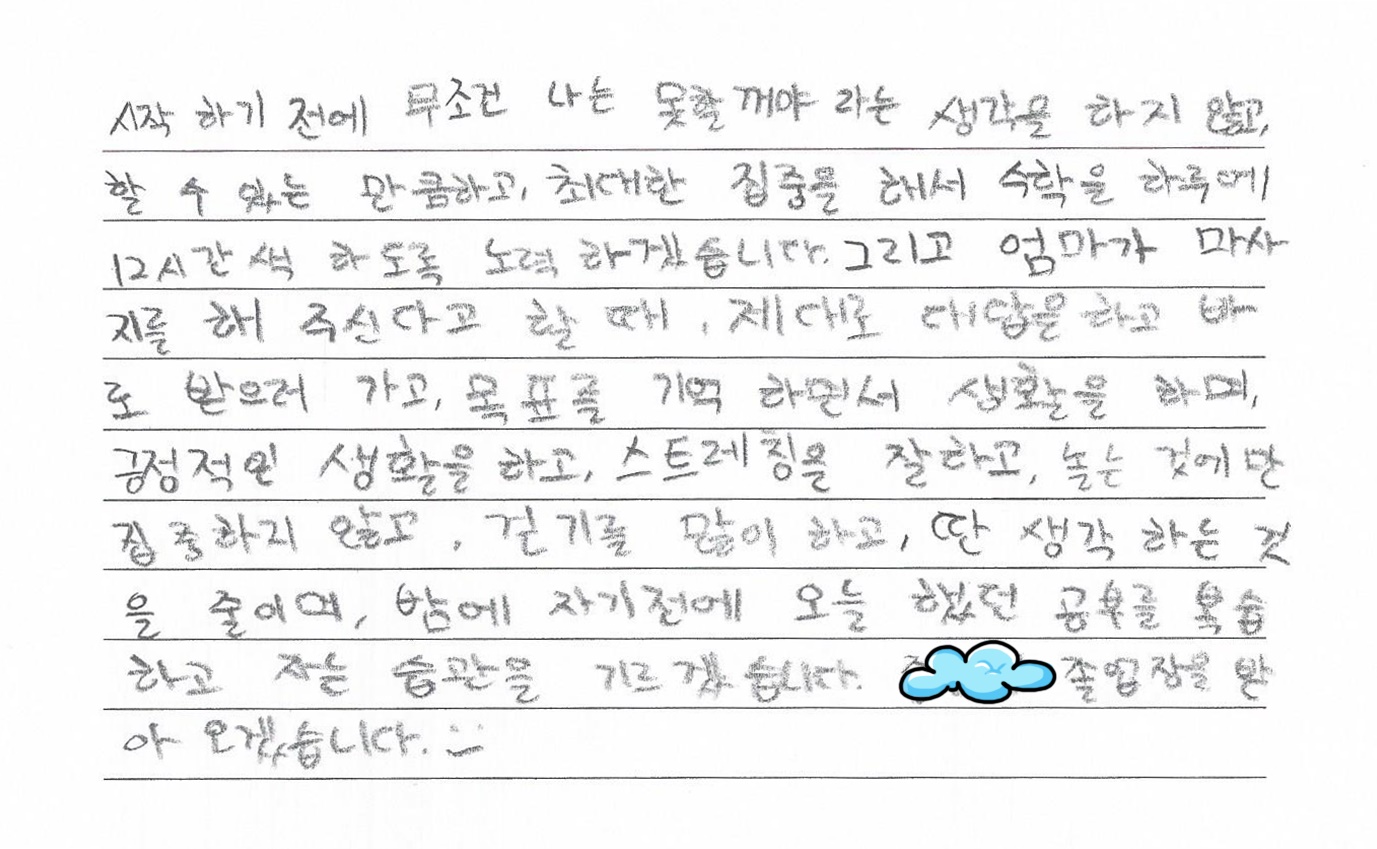 시작 하기 전에 무조건 나는 못할 꺼야 라는 생각을 하지 않고,
할 수 있는 만큼하고, 최대한 집중을 해서 수학을 하루에
12시간 색 하도록 노력 하겠습니다. 그리고 엄마가 마사
지를 해 주신다고 할 때, 제대로 대답을 하고 바
로 받으러 가고, 목표를 기억 하면서 생활을 하며,
긍정적인 생활을 하고, 스트레칭을 잘하고, 놀는 것에만
집중하지 않고, 걷기를 많이 하고, 딴 생각 하는 것
을 줄이며, 밤에 자기전에 오늘 했던 공부를 복습
하고 자는 습관을 기르겠습니다. 졸업장을 받
아 오겠습니다.